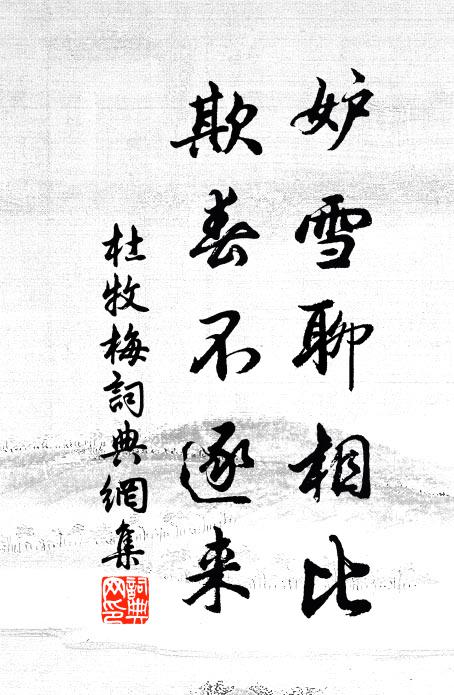 妒雪聊相比
欺春不逐来
杜牧梅詞典網集
詞典网印